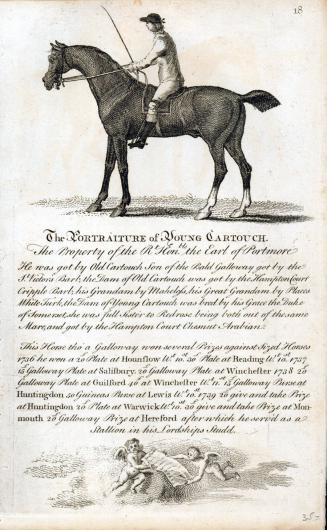 18
The PORTRAITURE of YOUNG CARTOUCH.
The Property of the Rt. Honble. the Earl of Portmore
He was got by Old Cartouch Son of the Bald Galloway got by the
St. Victors Barb, the Dam of Old Cartouch was got by the Hampton Court
Cripple Barb, his Grandam by Makeless, his Great Grandam by Places
White Turk, the Dam of Young Cartouch was bred by his Grace the Duke
of Somerset, she was full Sister to Redrose being both out of the same
Mare, and got by the Hampton Court Chesnut Arabian.
This Horse tho' a Galloway won several Prizes against Sized Horses
1736 he won a 20£ Plate at Hounslow Wt. 10st. 30£ Plate at Reading Wt. 10st. 1737
15£ Galloway Plate at Salisbury. 20£ Galloway Plate at Winchester 1738 20£
Galloway Plate at Guilford 40£ at Winchester Wt. 11st. 15£ Galloway Purse at
Huntingdon, 50 Guineas Purse at Lewis Wt. 10st. 1739 20£ give and take Prize
at Huntingdon 20£ Plate at Warwick Wt. 10st. 30£ give and take Prize at Mon-
mouth 20£ Galloway Prize at Hereford after which he serv'd as a
Stallion in his Lordships Studd.
35-